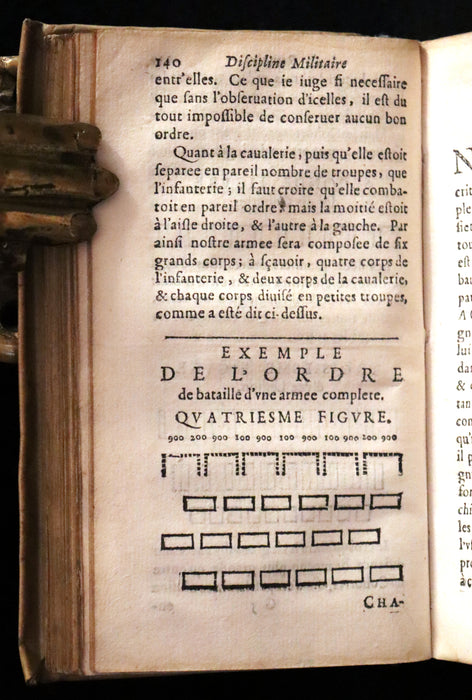 140 Discipline Militaire
entr'elles. Ce que ie iuge si necessaire
que sans l'obseruation d'icelles, il est du
tout impossible de conseruer aucun bon
ordre.
Quant à la caualerie; puis qu'elle estoit
separee en pareil nombre de troupes, que
l'infanterie; il faut croire qu'elle comba-
toit en pareil ordre: mais la moitié estoit
à l'aisle droite, & l'autre à la gauche. Par
ainsi nostre armee sera composee de six
grands corps; à sçauoir, quatre corps de
l'infanterie, & deux corps de la caualerie,
& chaque corps diuisé en petites troupes,
comme a esté dit ci-dessus.
EXEMPLE
DE L'ORDRE
de bataille d'vne armee complete.
QVATRIESME FIGVRE.
900 200 900 100 900 100 900 100 900 200 900
CHA-
N
crit
ple
est
pa
A C
gn
lui
dar
& c
tan
con
qu'
il p
gn
for
chi
les
l'vs
pre
à ç